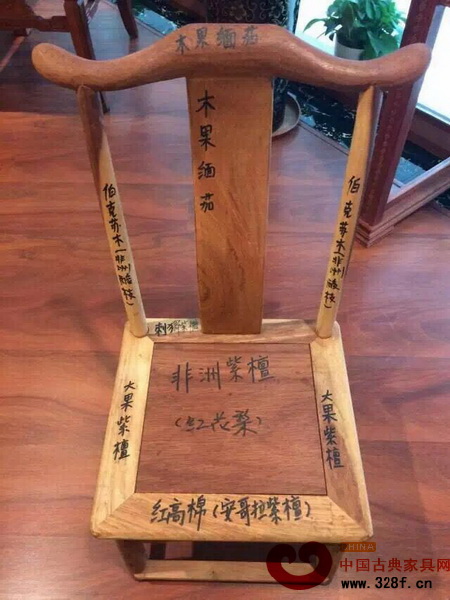 木果缅茄
木果缅茄
伯克苏木(非洲酸枝)
伯克苏木(非洲酸枝)
非洲紫檀
(红花梨)
大果紫檀
大果紫檀
红高棉(安哥拉紫檀)
CHINA
中国古典家具网
www.328f.cn